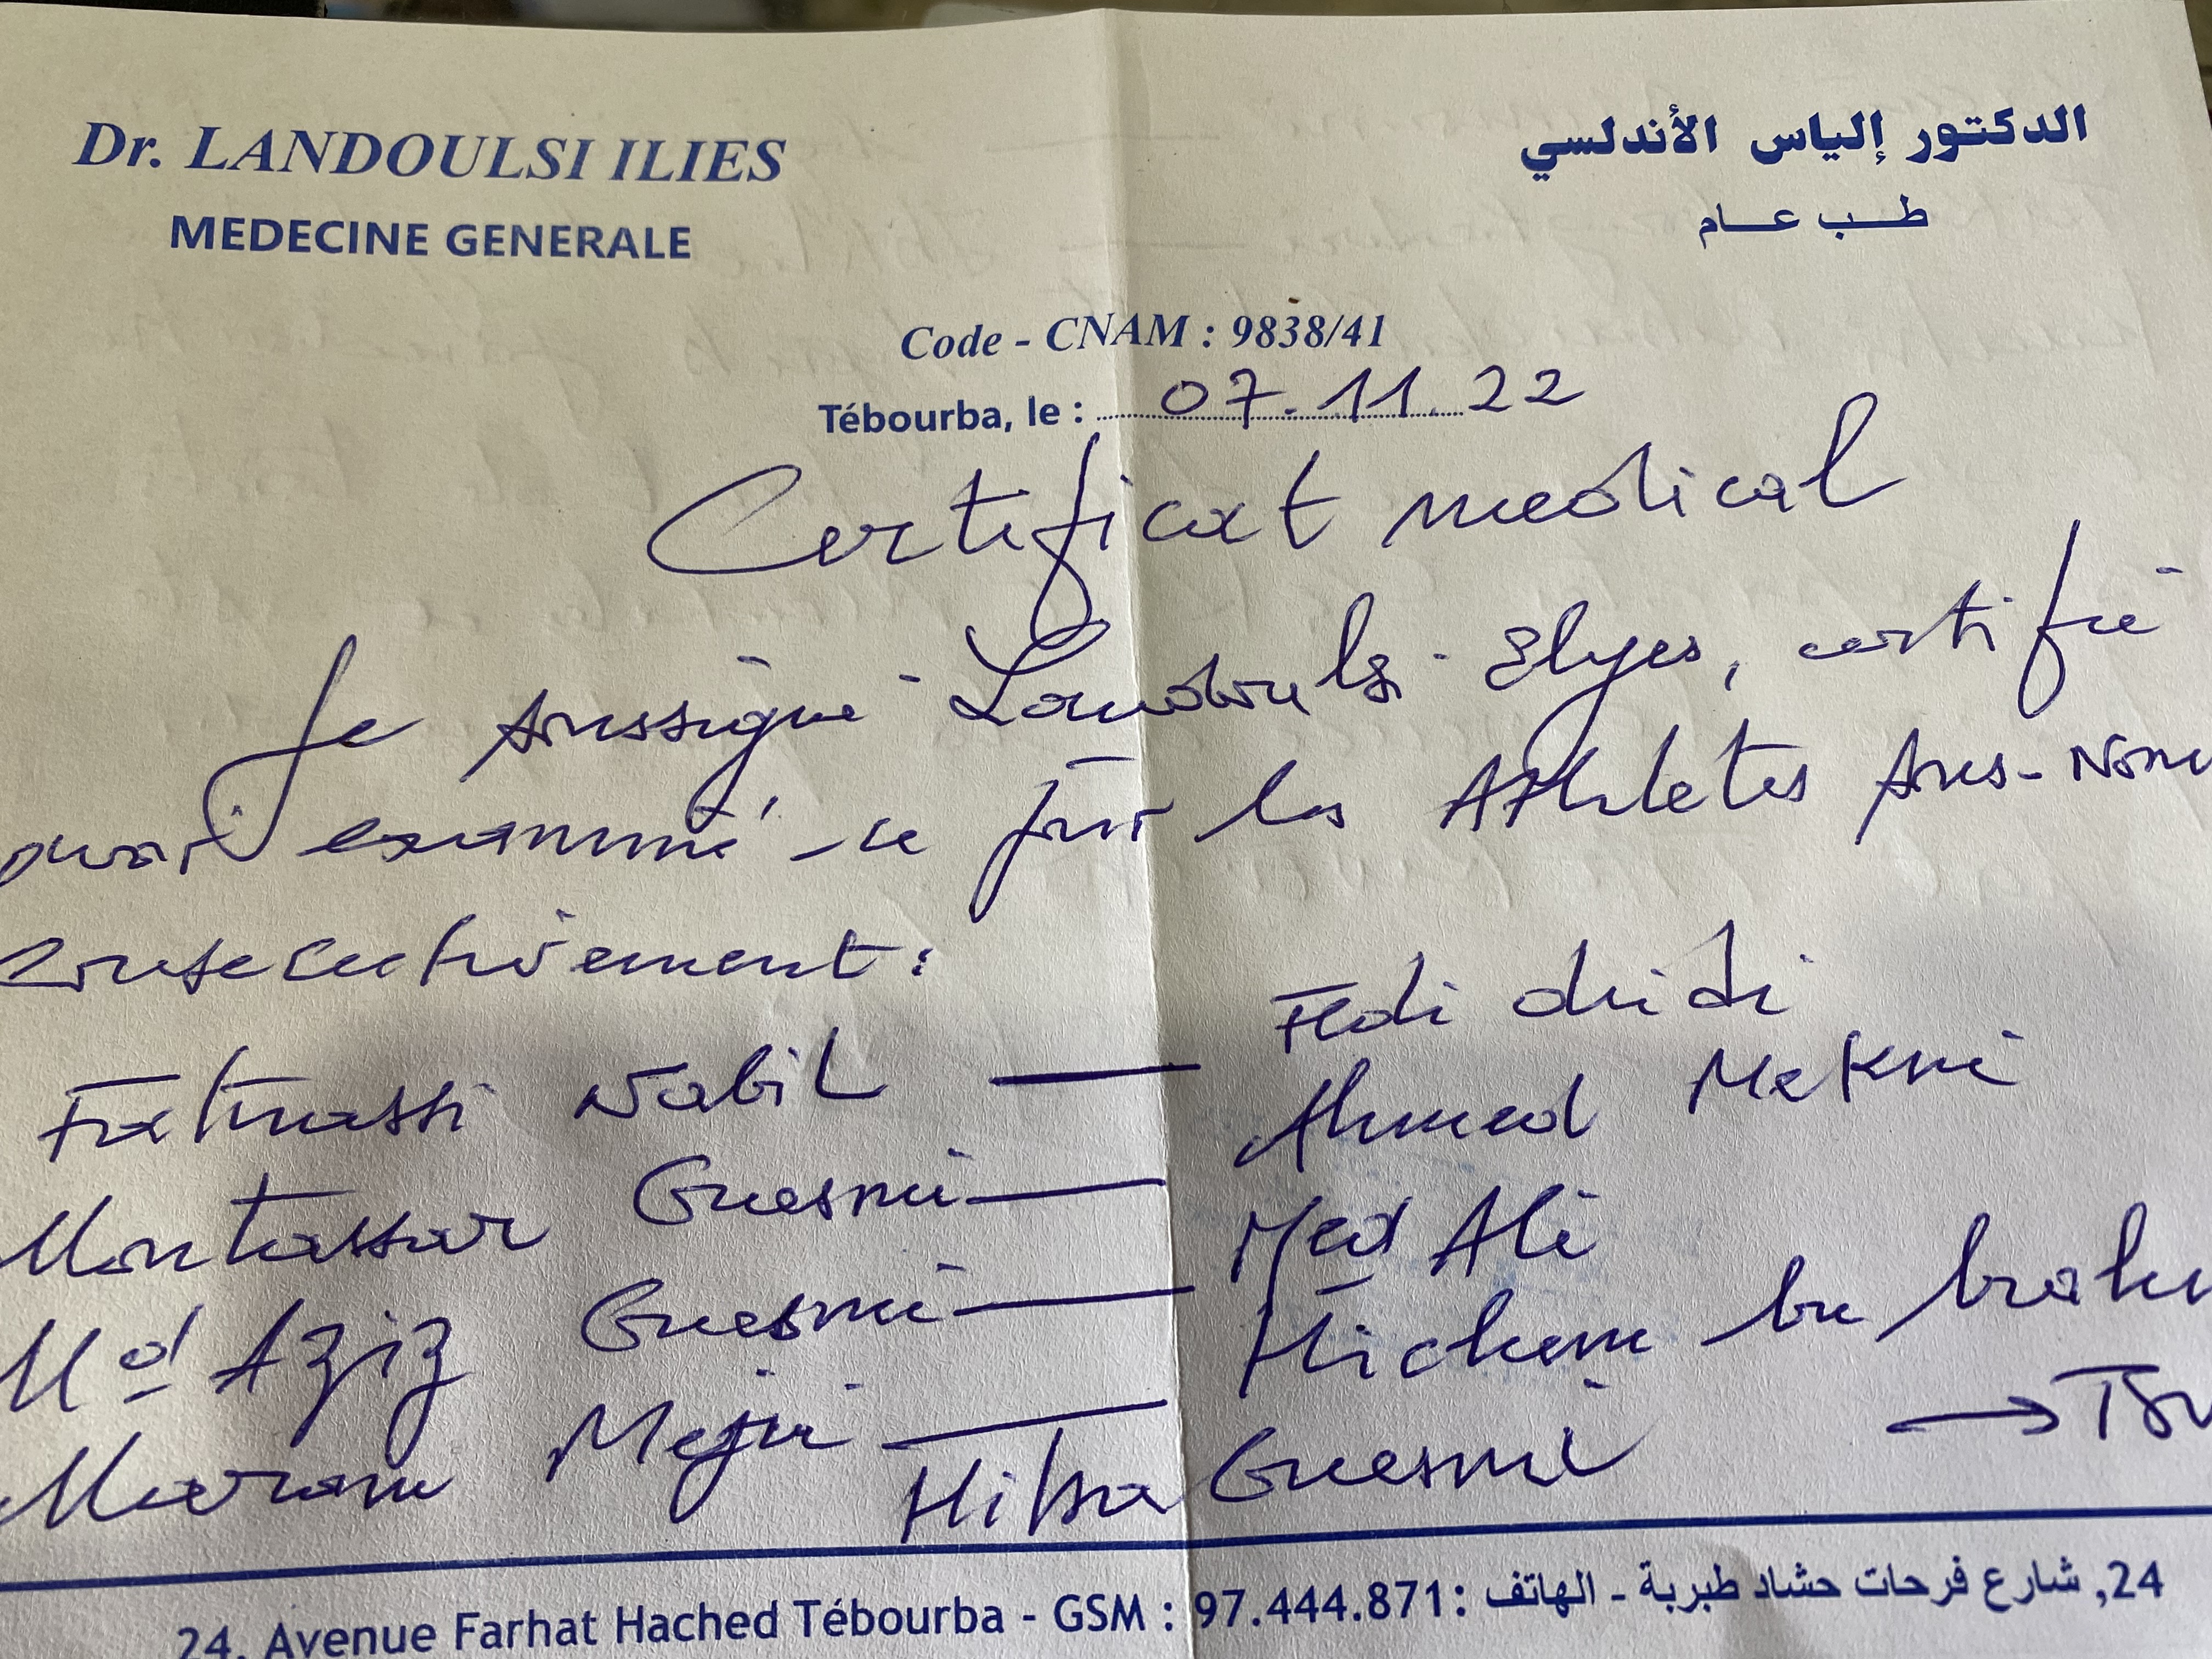 Dr. LANDOULSI ILIES
MEDECINE GENERALE
الدكتور إلياس الأندلسي
طب عام
Code - CNAM : 9838/41
Tébourba, le : 07.11.22
Certificat medical
Je soussigné Landoulsi Elyes, certifié
avoir examiné ce jour les Athletes sous-
consecutivement :
Fatnassi Nabil — Fedi dridi
Montassar Guesmi — Ahmed Mekni
Md Aziz Guesmi — Med Ali
Maram Mejri — Hichem
Guesmi →
24, Avenue Farhat Hached Tébourba - GSM : 97.444.871 : 24, شارع فرحات حشاد طبربة - الهاتف